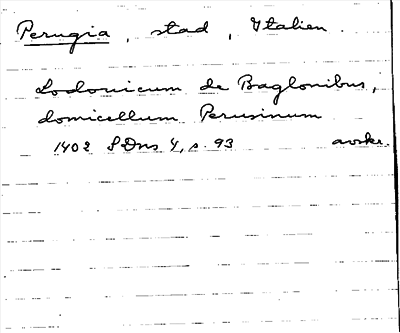 Perugia, stad, Italien.
Lodovicum de Baglonibus,
domicellum Perusinum
1402 SDns 4, s. 93 avskr.